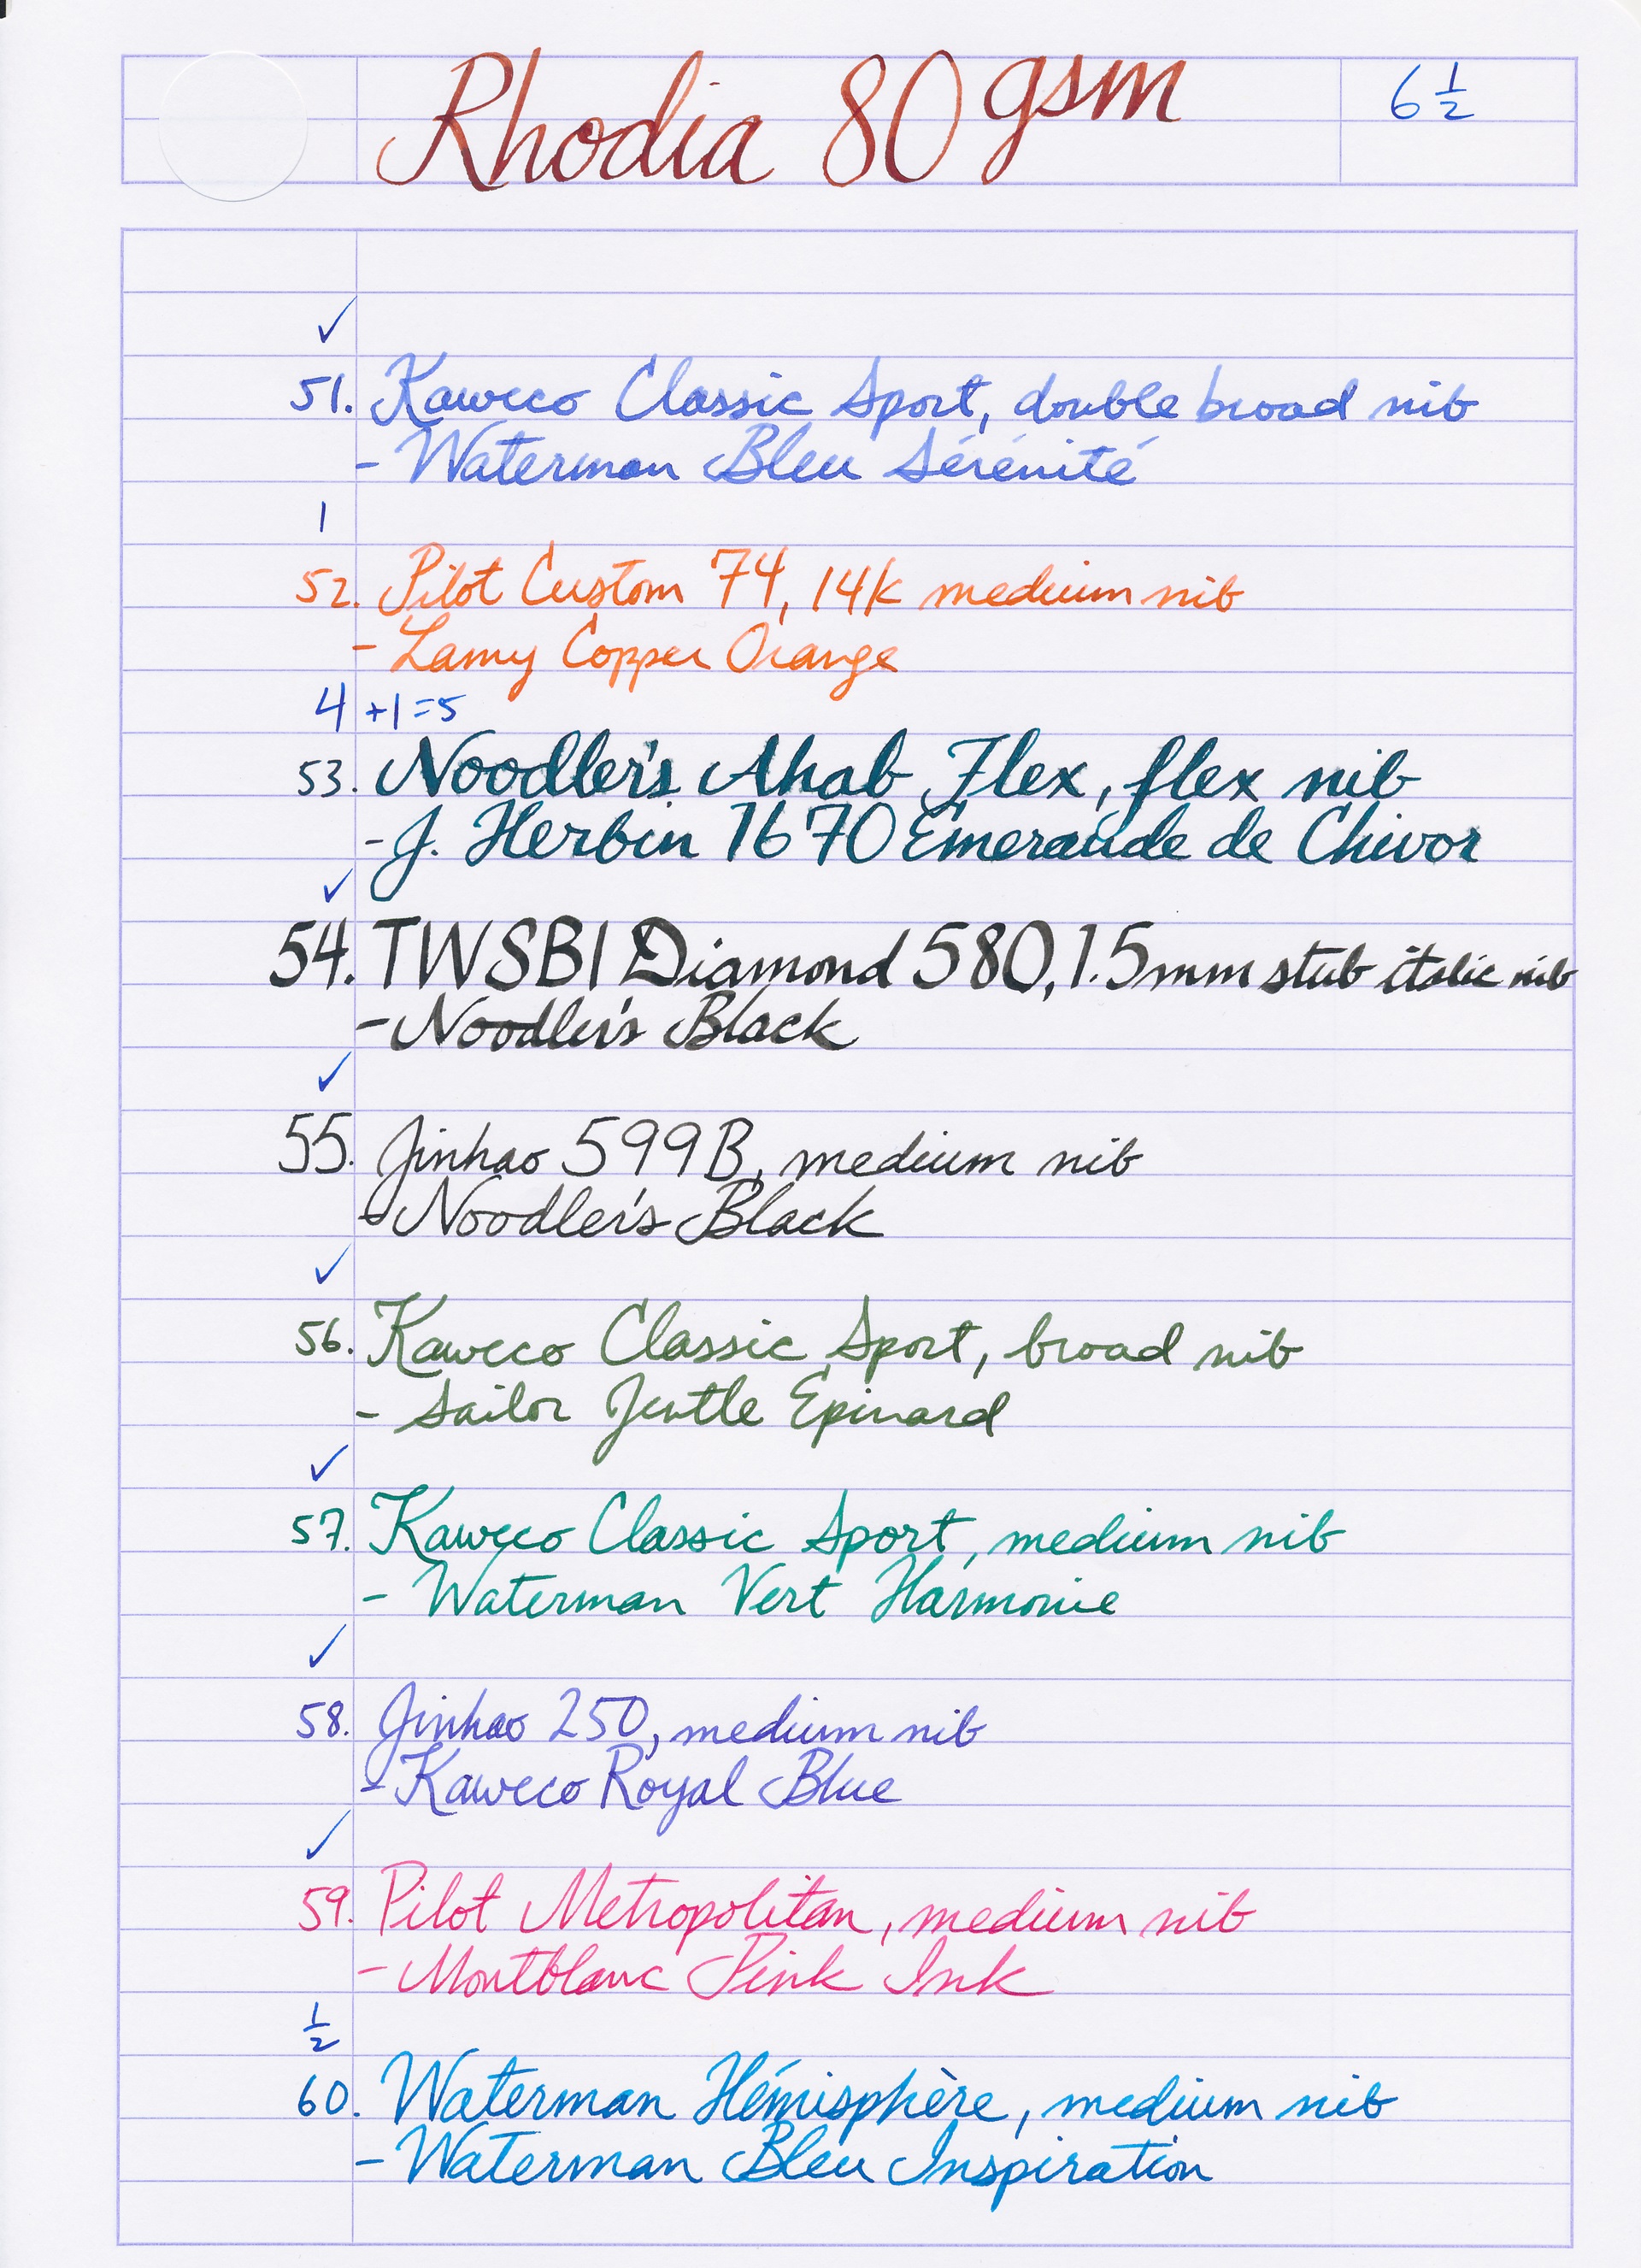 Rhodia 80 gsm
6 1/2
✓
51. Kaweco Classic Sport, double broad nib
- Waterman Bleu Sérénité
1
52. Pilot Custom 74, 14k medium nib
- Lamy Copper Orange
4 +1=5
53. Noodler's Ahab Flex, flex nib
- J. Herbin 1670 Émeraude de Chivor
✓
54. TWSBI Diamond 580, 1.5mm stub italic nib
- Noodler's Black
✓
55. Jinhao 599B, medium nib
- Noodler's Black
✓
56. Kaweco Classic Sport, broad nib
- Sailor Jentle Epinard
✓
57. Kaweco Classic Sport, medium nib
- Waterman Vert Harmonie
✓
58. Jinhao 250, medium nib
- Kaweco Royal Blue
✓
59. Pilot Metropolitan, medium nib
- Montblanc Pink Ink
1/2
60. Waterman Hémisphère, medium nib
- Waterman Bleu Inspiration